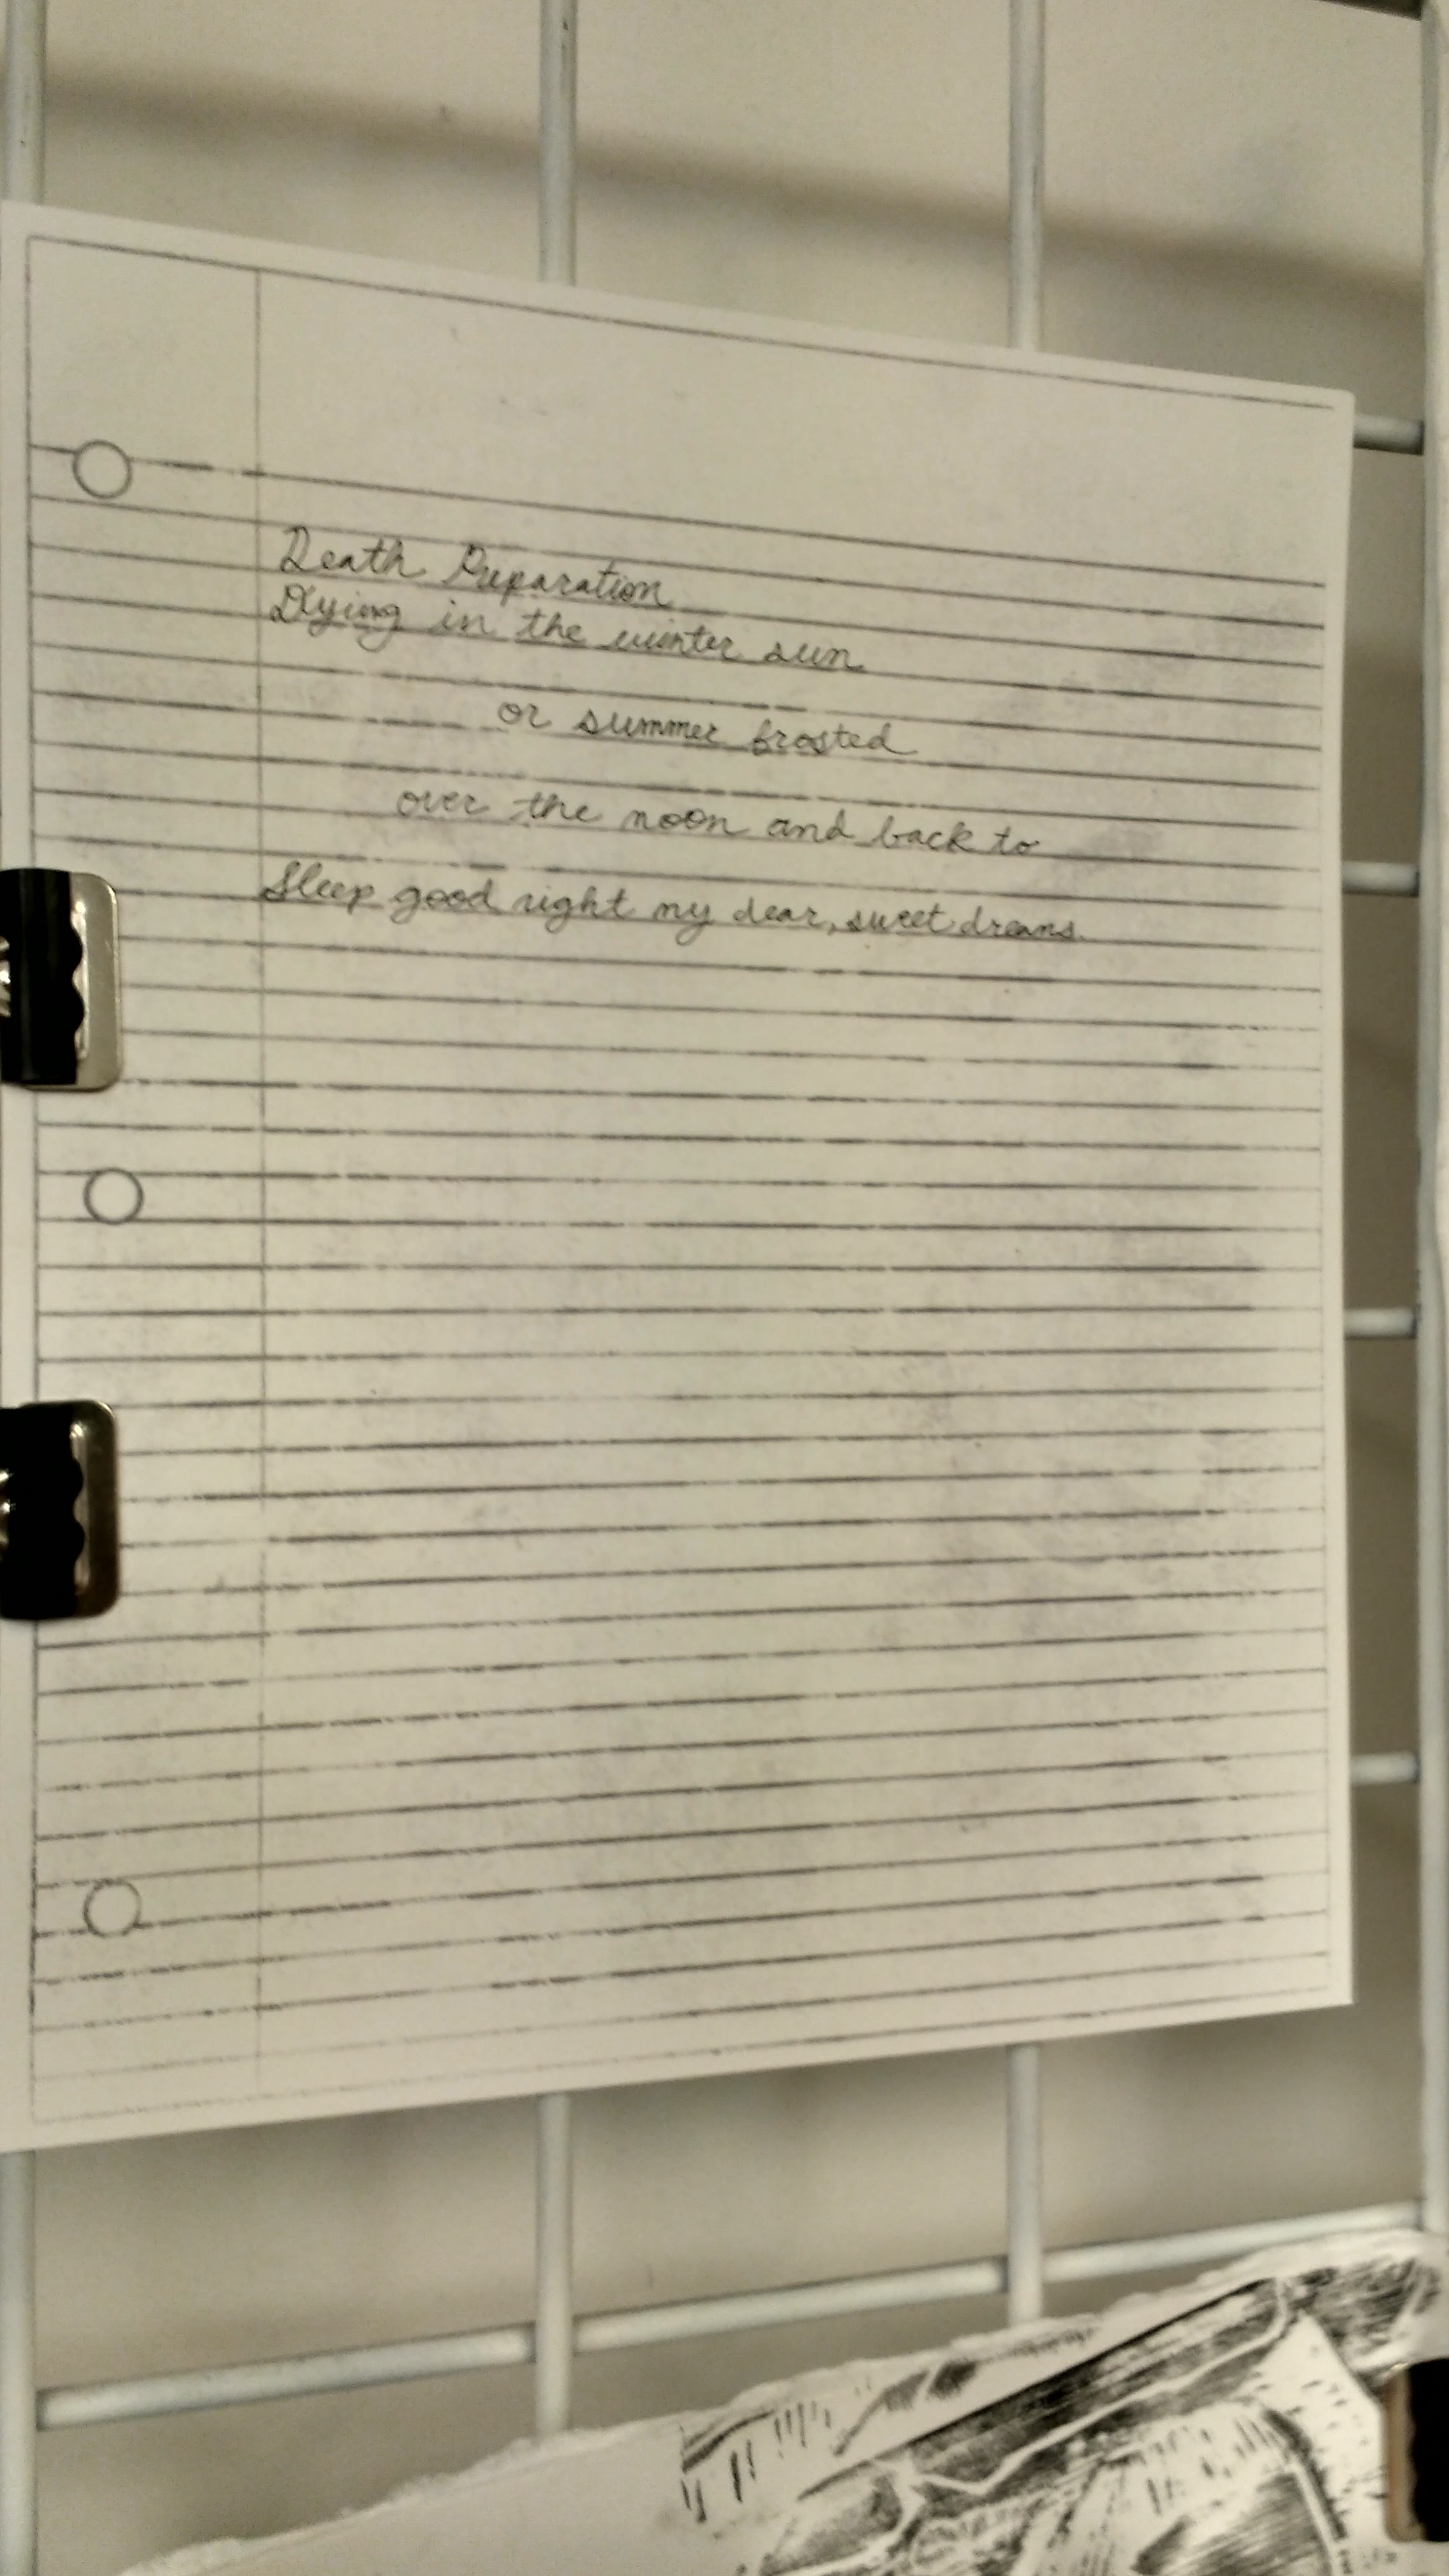 Death Preparation
Dying in the winter sun
or summer frosted
over the noon and back to
Sleep good night my dear, sweet dreams.